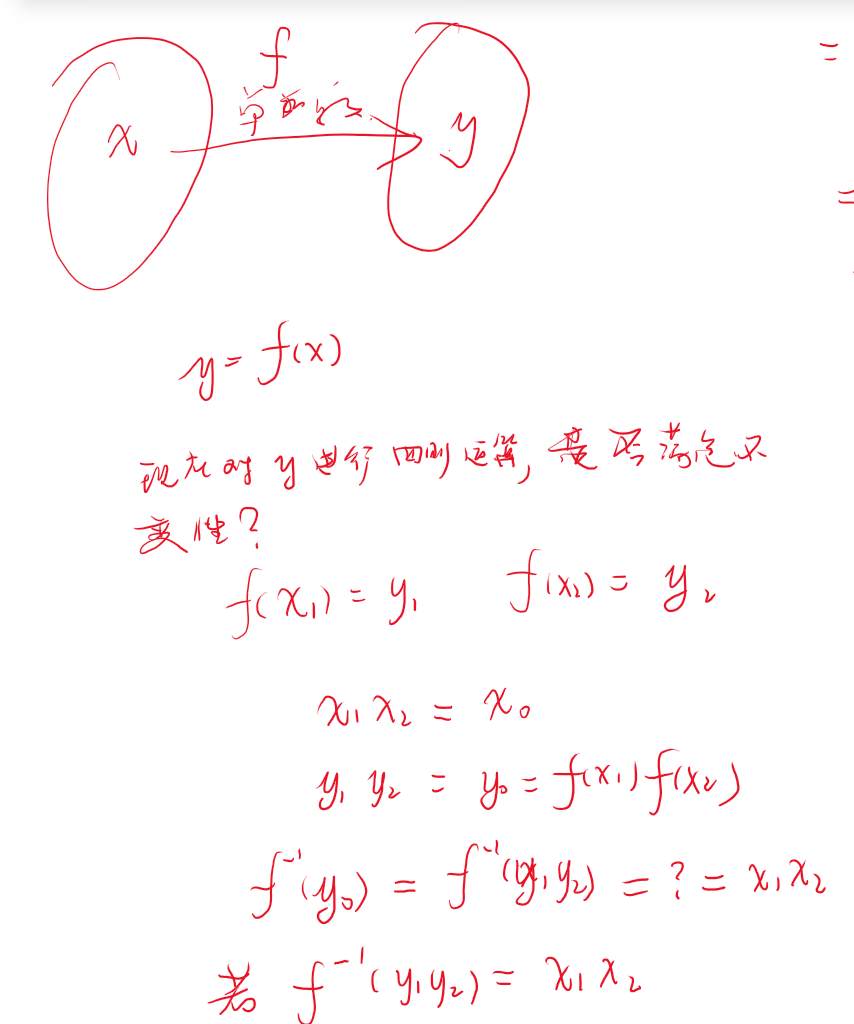 f
x 单 y
y = f(x)
现在对 y 进行四则运算, 是否满足不
变性?
f(x₁) = y₁ f(x₂) = y₂
x₁ x₂ = x₀
y₁ y₂ = y₀ = f(x₁) f(x₂)
f⁻¹(y₀) = f⁻¹(y₁ y₂) = ? = x₁ x₂
若 f⁻¹(y₁ y₂) = x₁ x₂